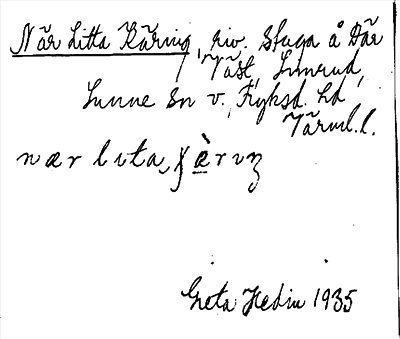 När Litta Käring, riv. stuga å Där
Väst, Lunrud,
Sunne sn v., Fryksd. hd
Värml. l.
nær lɩta, ʃæ̀rɩŋ
Greta Hedin 1935